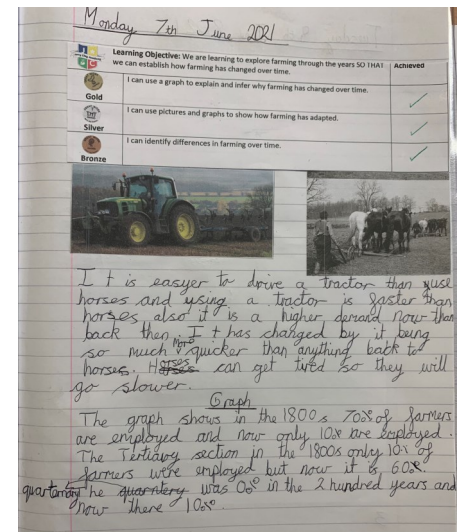 Monday 7th June 2021
Learning Objective: We are learning to explore farming through the years SO THAT
we can establish how farming has changed over time.
Achieved
I can use a graph to explain and infer why farming has changed over time.
Gold
I can use pictures and graphs to show how farming has adapted.
Silver
I can identify differences in farming over time.
Bronze
It is easyer to drive a tractor than use
horses and using a tractor is faster than
horses also it is a higher demand now than
back then. It has changed by it being
so much more quicker than anything back to
horses. Horses can get tired so they will
go slower.
Graph
The graph shows in the 1800s 70% of farmers
are employed and now only 10% are employed.
The Tertiary section in the 1800s only 10% of
farmers were employed but now it is 60%.
quarternary The quarntery was 0% in the 2 hundred years and
now there 10%.